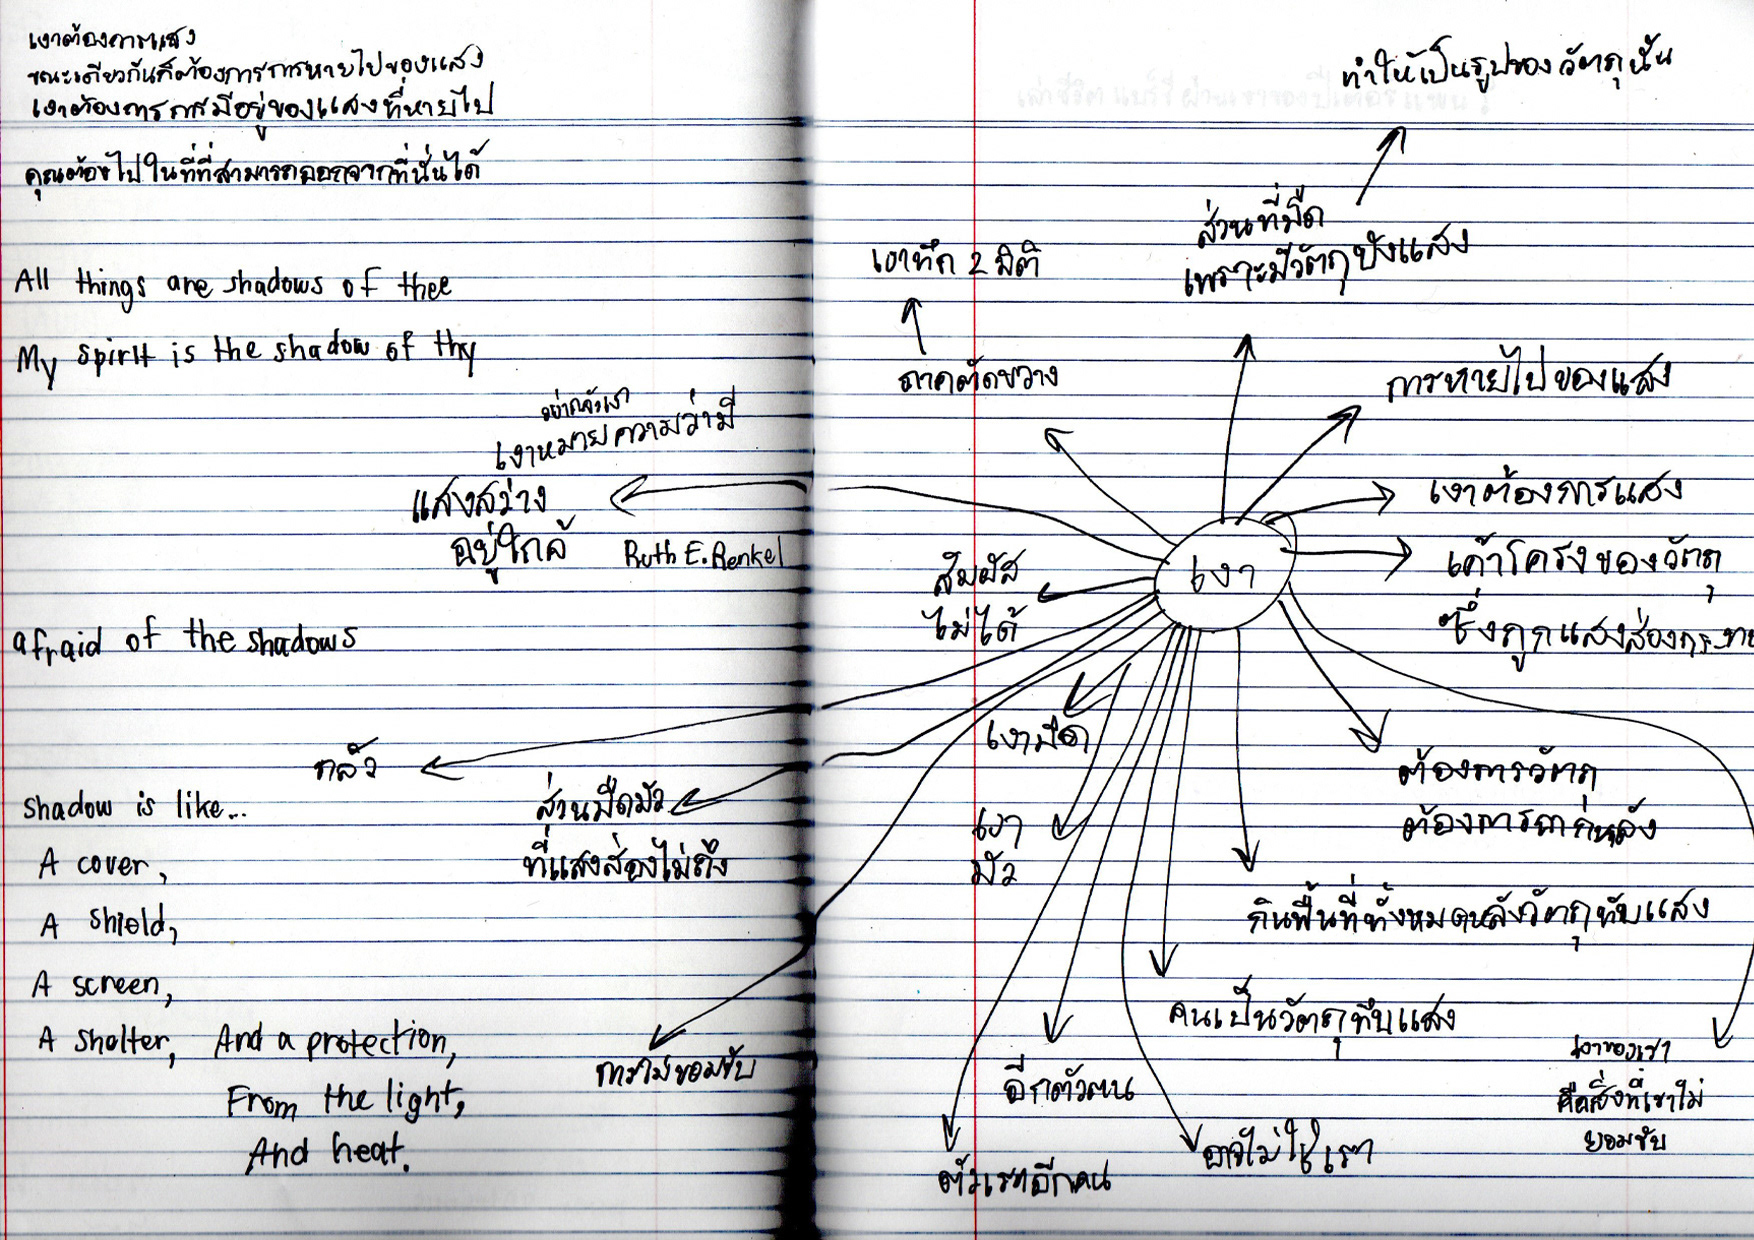 เงาต้องการแสง
ขณะเดียวกันก็ต้องการการหายไปของแสง
เงาต้องการการมีอยู่ของแสงที่หายไป
คุณต้องไปในที่ที่สามารถออกจากที่นั่นได้
All things are shadows of thee
My spirit is the shadow of thy
อย่ากลัวเงา
เงาหมายความว่ามี
แสงสว่าง
อยู่ใกล้
Ruth E. Renkel
afraid of the shadows
กลัว
shadow is like...
A cover,
A shield,
A screen,
A shelter, And a protection,
From the light,
And heat.
ส่วนมืดมัว
ที่แสงส่องไม่ถึง
การไม่ยอมรับ
ทำให้เป็นรูปของวัตถุนั้น
ส่วนที่มืด
เพราะมีวัตถุบังแสง
เงาทึก 2 มิติ
ภาคตัดขวาง
การหายไปของแสง
เงาต้องการแสง
เค้าโครงของวัตถุ
ซึ่งถูกแสงส่องกระทบ
เงา
สัมผัส
ไม่ได้
เงามืด
เงา
มัว
ต้องการวัตถุ
ต้องการฉากหลัง
กินพื้นที่ทั้งหมดหลังวัตถุทึบแสง
คนเป็นวัตถุทึบแสง
อีกตัวตน
ตัวเราอีกคน
อาจไม่ใช่เรา
เงาของเรา
คือสิ่งที่เราไม่
ยอมรับ